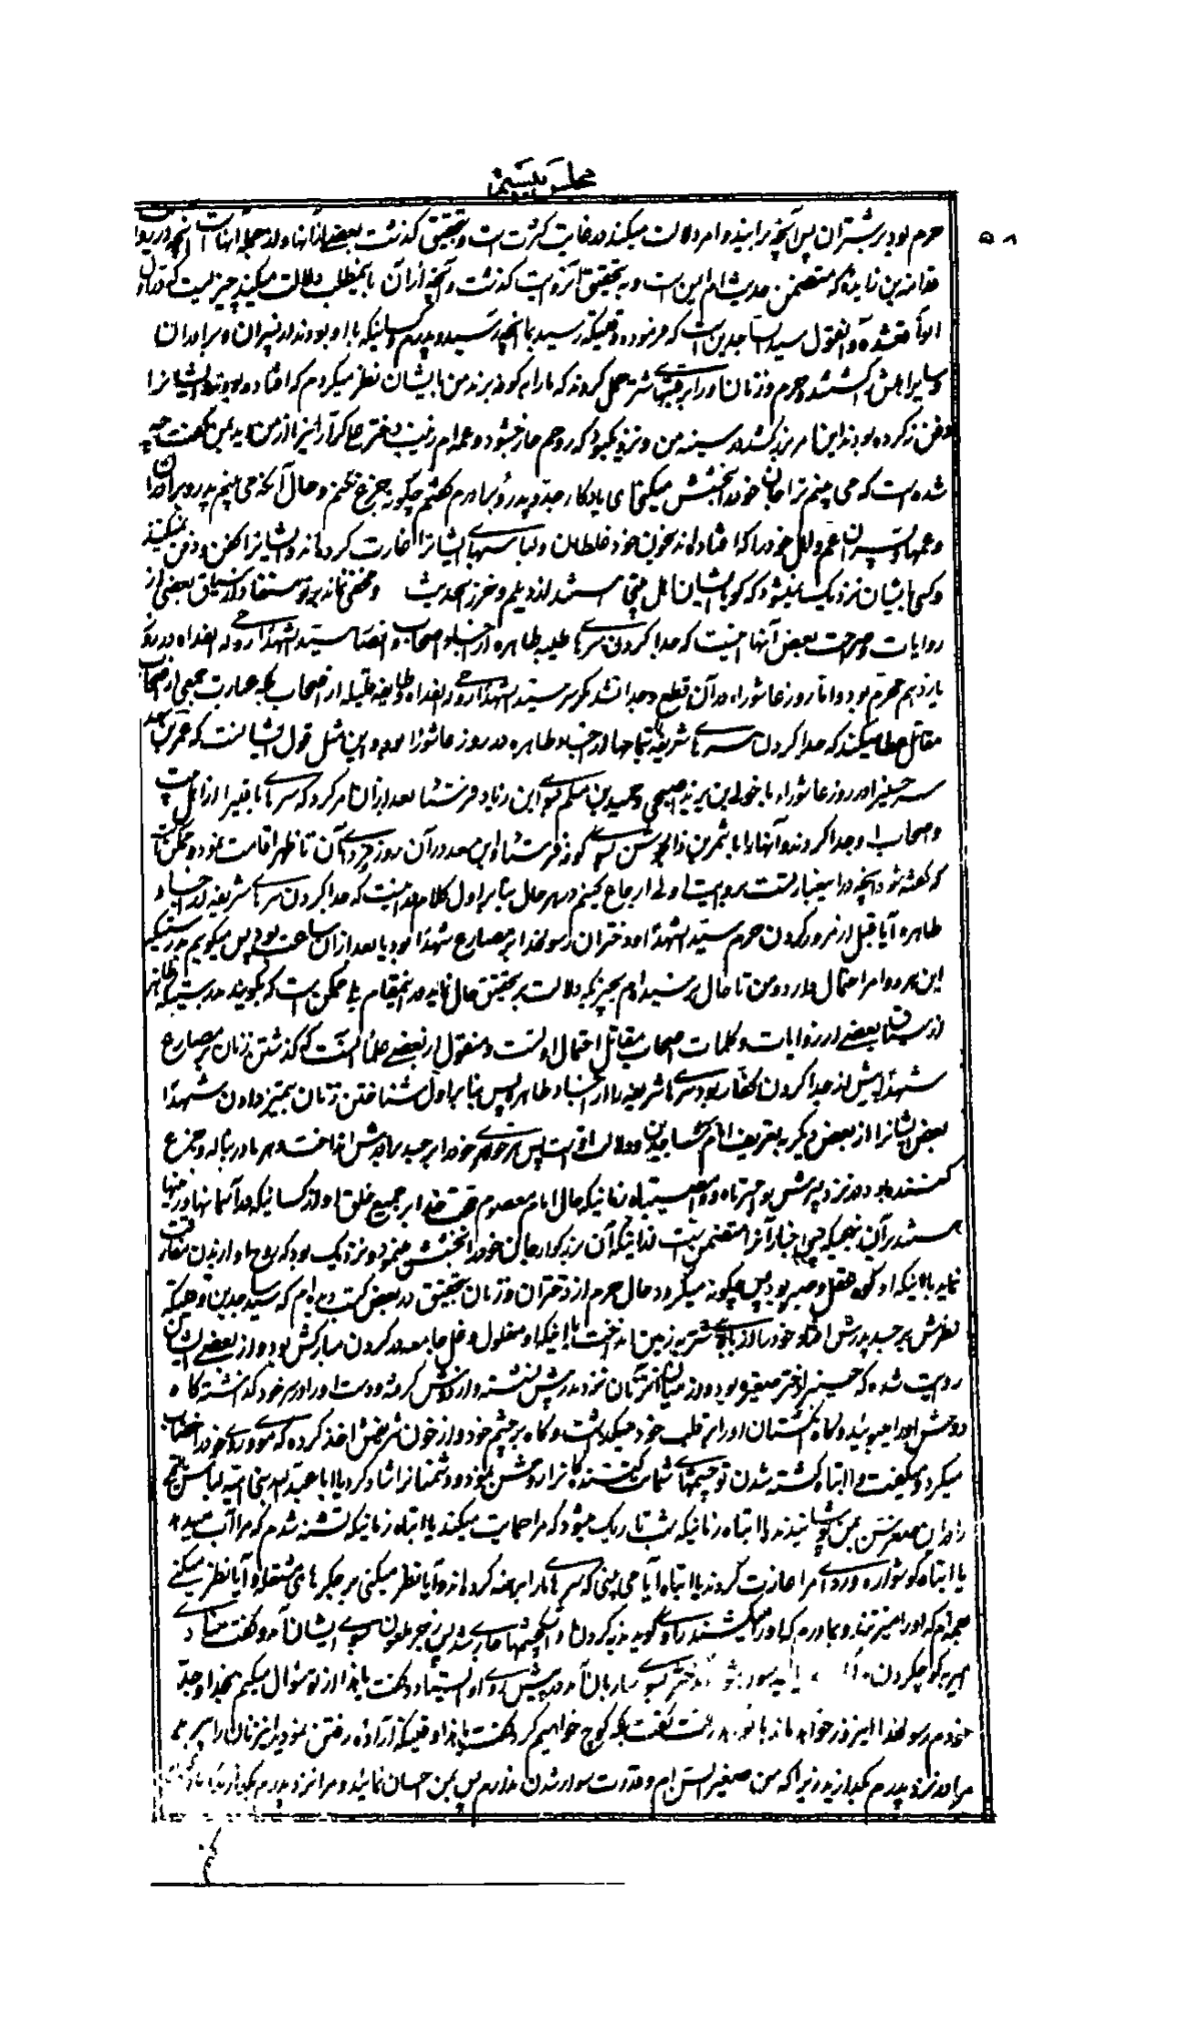 مجلس بیستم
۵۸
حرم بود بر شتران پس آنچه براینده و امر دلالت میکند در غایت کثرت است و بتحقیق گذشت بعضی از آنها و از جمله آنهاست آنچه در
قدامة بن زایده که متضمن حدیث ام ایمن است و به تحقیق گذشت و آنچه از آن باین مطلب دلالت میکند چیزیست که
قول سید الساجدین است که فرموده وقتیکه رسید بما آنچه رسید و پدرم و کسانیکه با او بودند از پسران و برادران
و سایر اهلش کشته شدند و حرم و زنان او را بر شتر حمل کردند که ما را بکوفه برند من بایشان نظر میکردم که افتاده بودند و ایشانرا
دفن نکرده بودند این امر بزرگ شد در سینه من و نزدیک بود که روحم خارج شود و عمه ام زینب دختر علی آنرا از من دید بمن گفت چه
شده است که می بینم ترا جان خود را بخشش میکنی ای یادگار جد و پدر و برادرم گفتم چگونه جزع نکنم و حال آنکه می بینم پدر و برادران
و عموها و پسران عم و اهل خود را که افتاده اند بخون خود غلطان و لباسهای ایشانرا غارت کرده اند و ایشانرا کفن و دفن نمیکنند
و کسی بایشان نزدیک نمیشود که گویا ایشان اهل بیتی هستند از دیلم و خزر الحدیث و مخفی نماند بر تو مستفاد از سیاق بعضی از
روایات و صراحت بعض آنها اینست که جدا کردن سرهای طیبه طاهره از اجساد اصحاب و انصار سید الشهداء روحی له الفداه در روز
یازدهم محرم بود و اما روز عاشورا در آن قطع و جدا نشد مگر سر سید الشهداء روحی له الفداء و طایفه قلیله از اصحاب بلکه عبارت جمعی از اصحاب
مقاتل عطا میکند که جدا کردن سرهای شریفه تمامها از اجساد طاهره در روز عاشورا بود و این مثل قول ایشانست که عمر بن سعد
سر حسین را در روز عاشورا با خولی بن یزید اصبحی و حمید بن مسلم بسوی ابن زیاد فرستاد بعد از آن امر کرد که سرهای باقین را از اهل بیت
و اصحاب او جدا کردند و آنها را با شمر بن ذی الجوشن بسوی کوفه فرستاد و ابن سعد در آن روز و فردای آن تا ظهر اقامت نمود و ممکن است
که گفته شود آنچه در این عبارتست بروایت اولی ارجاع کنیم در هر حال بنابر اول کلام در اینست که جدا کردن سرهای شریفه از اجساد
طاهره آیا قبل از مرور کردن حرم سید الشهدا و دختران رسولخدا بر مصارع شهدا بود یا بعد از آن ساعت بود پس میگویم بدرستیکه
این هر دو امر احتمال دارد و من تا حال نرسیده ام بچیزیکه دلالت بر تحقیق حال نماید در اینمقام بلی ممکن است که بگویند بدرستیکه ظاهر
از سیاق بعضی از روایات و کلمات اصحاب مقاتل احتمال اولست و منقول از بعضی علما آنست که گذشتن زنان بر مصارع
شهدا پیش از جدا کردن کفار بود سرهای شریفه را از اجساد طاهره پس بنابر اول شناختن زنان بتمیز دادن شهدا
بعض ایشانرا از بعض دیگر به تعریف امام سید الساجدین و دلالت اوست پس هر خواهری خود را بر جسد برادرش انداخت و هر مادر بناله و جزع
کننده بود در نزد پسرش بود آه وا مصیبتاه زمانیکه حال امام معصوم حجت خدا بر جمیع خلق او از کسانیکه در آسمانها و زمینها
هستند بر آن نهجیکه این اخبار آنرا متضمن است از اینکه آن بزرگوار جان خود را بخشش مینمود و نزدیک بود که روح او از بدن مفارقت
نماید با اینکه او کوه عقل و صبر بود پس چگونه میگردد حال حرم از دختران و زنان بتحقیق در بعض کتب دیده ام که سید ساجدین وقتیکه
نظرش بر جسد پدرش افتاد خود را از بالای شتر بر زمین انداخت با اینکه او مغلول و غل جامعه در گردن مبارکش بود و از بعضی
روایت شده که حسین را دختر صغیره بود و از میان آن زنان نزد پدرش نشسته و از دستش گرفته و دست او را در بر خود گذاشته گاه
دوش او را میبوئید و گاه انگشتان او را بر قلب خود میگذاشت و گاه بر چشم خود و از خون شریفش اخذ کرده که موی و روی خود را خضاب
میکرد و میگفت وا ابتاه کشته شدن تو چشمهای شماتت کننده گان را روشن نمود و دشمنان را شاد کرد یا ابا عبد الله بنی امیه لباس یتیمی
را در این صغر سن بمن پوشانیدند یا ابتاه زمانیکه شب تاریک میشود که مرا حمایت میکند یا ابتاه زمانیکه تشنه شدم که مرا آب میدهد
یا ابتاه گوشواره و ردای مرا غارت کردند یا ابتاه آیا می بینی که سرهای ما را برهنه کرده اند و آیا نظر میکنی بر جگرهای مشتعله و آیا نظر میکنی
عمه ام که او را میزنند و بمادرم که او را میکشند راوی گوید گریه کردند و اشکچشمها جاری شد پس زجر ملعون بسوی ایشان آمد و گفت منادی
امیر به کوچ کردن
پس آن دختر بسوی ساربان آمد در پیش روی او ایستاد و گفت یا هذا از تو سؤال میکنم بخدا و جدم
رسولخدا امروز خواهید ماند یا نه گفت بلکه کوچ خواهیم کرد گفت یا هذا وقتیکه اراده رفتن نمودید این زنان را ببرید
مرا در نزد پدرم بگذارید زیرا که من صغیر السن ام و قدرت سوار شدن ندارم پس بمن احسان نمائید و مرا نزد پدرم بگذارید